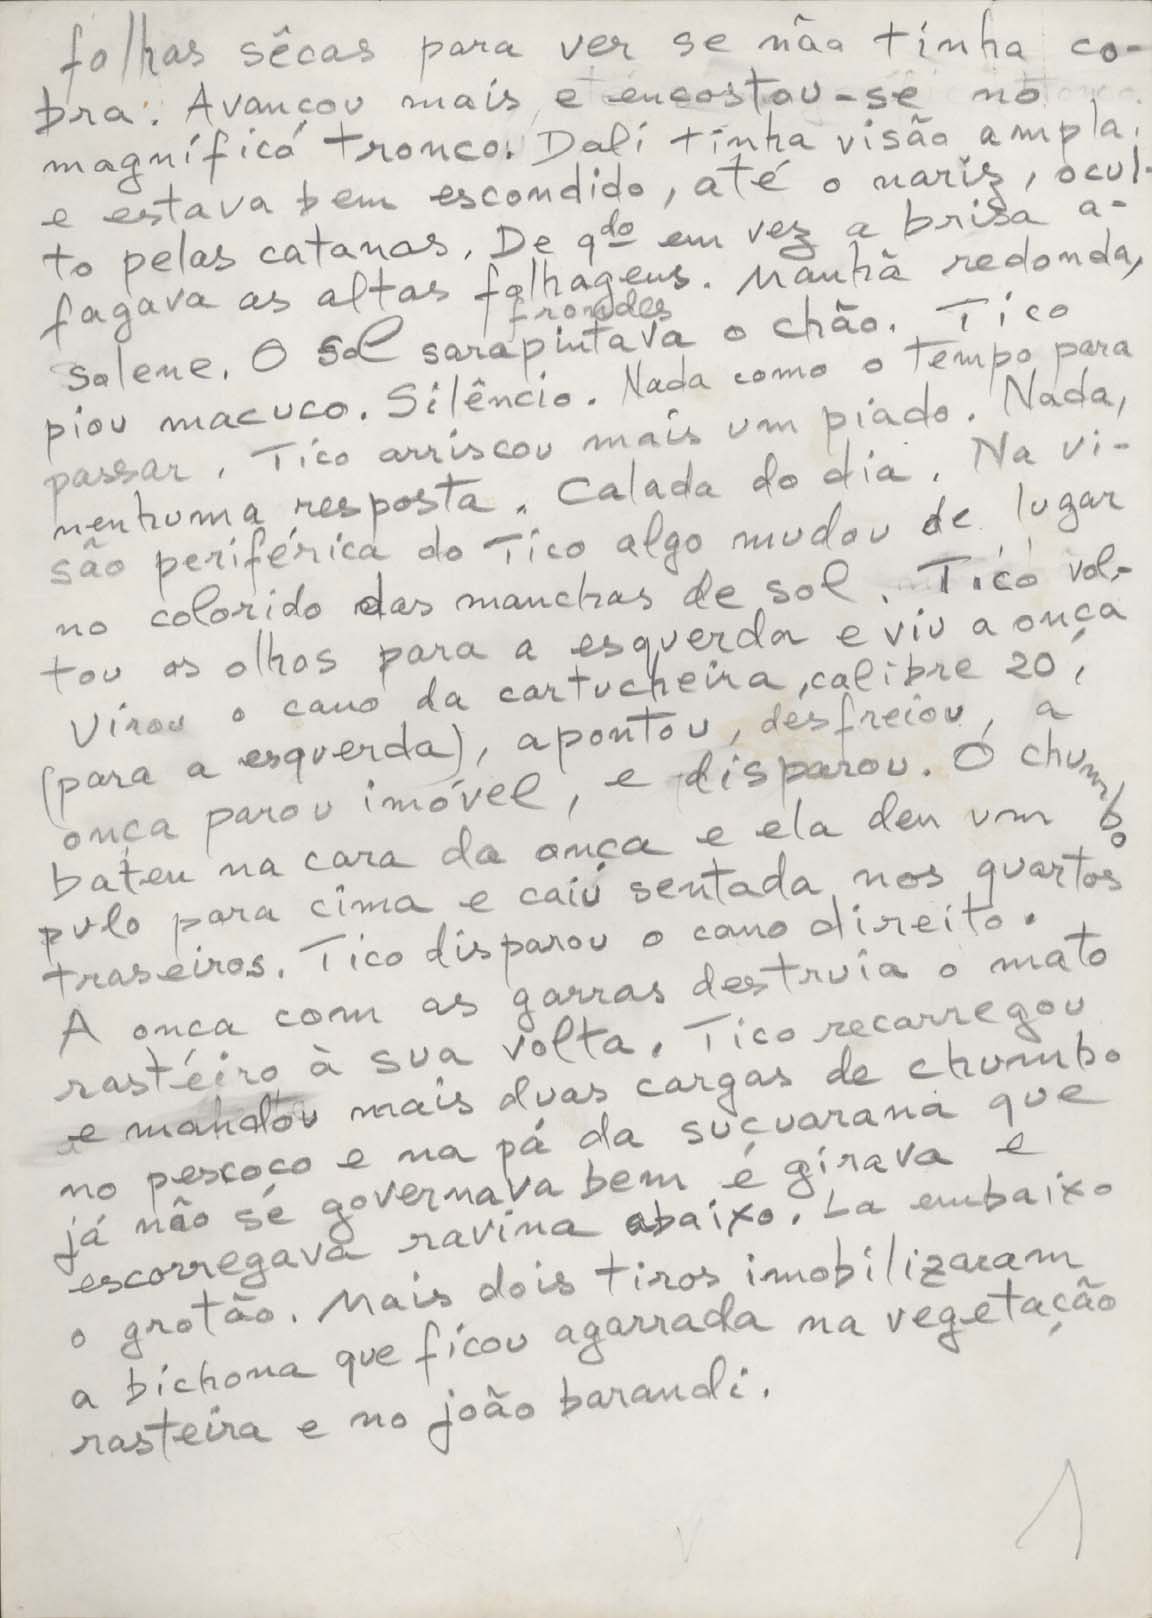 folhas sêcas para ver se não tinha co-
bra. Avançou mais e encostou-se no
magnífico tronco. Dalí tinha visão ampla,
e estava bem escondido, até o nariz, ocul-
to pelas catanas. De qdo em vez a brisa a-
fagava as altas folhagens. Manhã redonda,
frondes
solene. O sol sarapintava o chão. Tico
piou macuco. Silêncio. Nada como o tempo para
passar. Tico arriscou mais um piado. Nada,
nenhuma resposta. Calada do dia. Na vi-
são periférica do Tico algo mudou de lugar
no colorido das manchas de sol. Tico vol-
tou os olhos para a esquerda e viu a onça
Virou o cano da cartucheira, calibre 20,
(para a esquerda), apontou, desfreiou, a
onça parou imóvel, e disparou. O chumbo
bateu na cara da onça e ela deu um
pulo para cima e caiu sentada nos quartos
traseiros. Tico disparou o cano direito.
A onca com as garras destruia o mato
rasteiro à sua volta. Tico recarregou
e mandou mais duas cargas de chumbo
no pescoço e na pá da suçuarana que
já não se governava bem e girava e
escorregava ravina abaixo. La embaixo
o grotão. Mais dois tiros imobilizaram
a bichona que ficou agarrada na vegetação
rasteira e no joão barandi.
1